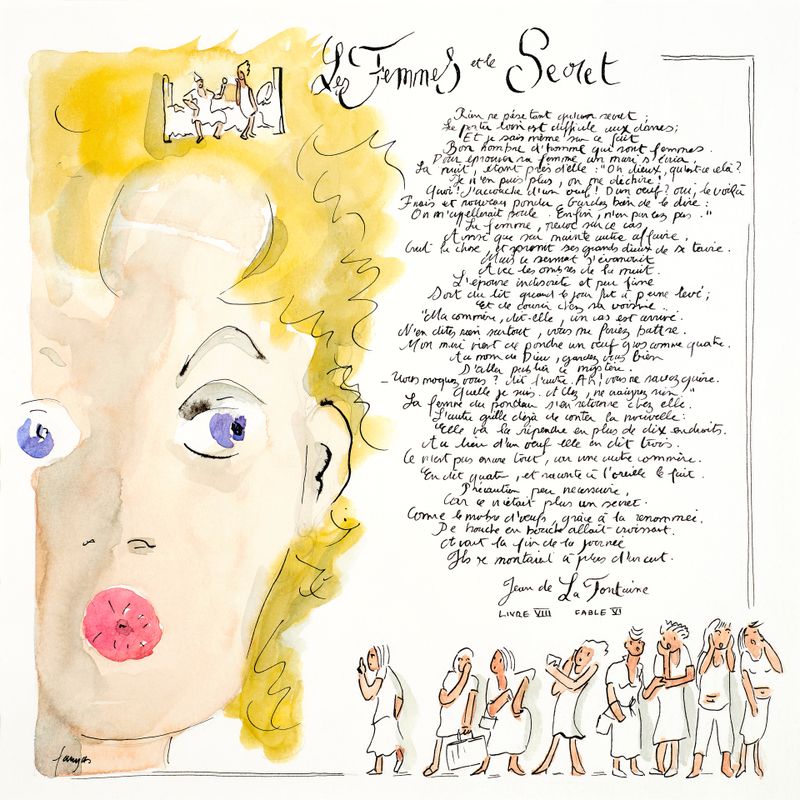 Les Femmes et le Secret
Rien ne pèse tant qu'un secret ;
Le porter loin est difficile aux dames ;
Et je sais même sur ce fait
Bon nombre d'hommes qui sont femmes.
Pour éprouver sa femme un mari s'écria,
La nuit, étant près d'elle : "Oh dieux, qu'est-ce cela ?
Je n'en puis plus, on me déchire !
Quoi ! J'accouche d'un oeuf ! D'un oeuf ? oui, le voilà
Frais et nouveau pondu. Gardez bien de le dire :
On m'appellerait poule. Enfin, n'en parlez pas."
La femme, neuve sur ce cas,
Ainsi que sur mainte autre affaire,
Crut la chose, et promit ses grands dieux de se taire.
Mais ce serment s'évanouit
Avec les ombres de la nuit.
L'épouse indiscrète et peu fine
Sort du lit quand le jour fut à peine levé ;
Et de courir chez sa voisine.
"Ma commère, dit-elle, un cas est arrivé.
N'en dites rien surtout, vous me feriez battre.
Mon mari vient de pondre un oeuf gros comme quatre.
Au nom de Dieu, gardez vous bien
D'aller publier ce mystère.
_ Vous moquez vous ? dit l'autre. Ah ! vous ne savez guère
Quelle je suis. Allez, ne craignez rien."
La femme du pondeur s'en retourne chez elle.
L'autre grille déjà de conter la nouvelle :
Elle va la répendre en plus de dix endroits.
Au lieu d'un oeuf elle en dit trois.
Ce n'est pas encore tout, car une autre commère.
En dit quatre, et raconte à l'oreille le fait.
Précaution peu necessaire,
Car ce n'était plus un secret.
Comme le nombre d'oeufs, grâce à la renommée,
De bouche en bouche allait croissant.
Avant la fin de la journée
Ils se montaient à plus d'un cent.
Jean de La Fontaine
LIVRE VIII FABLE VI